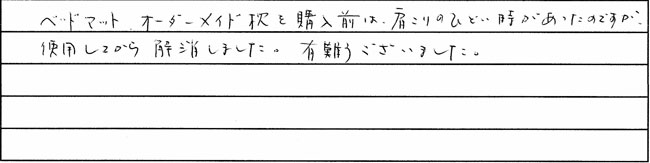 ベッドマット オーダーメイド枕を購入前は、肩こりのひどい時があったのですが、
使用してから解消しました。有難うございました。